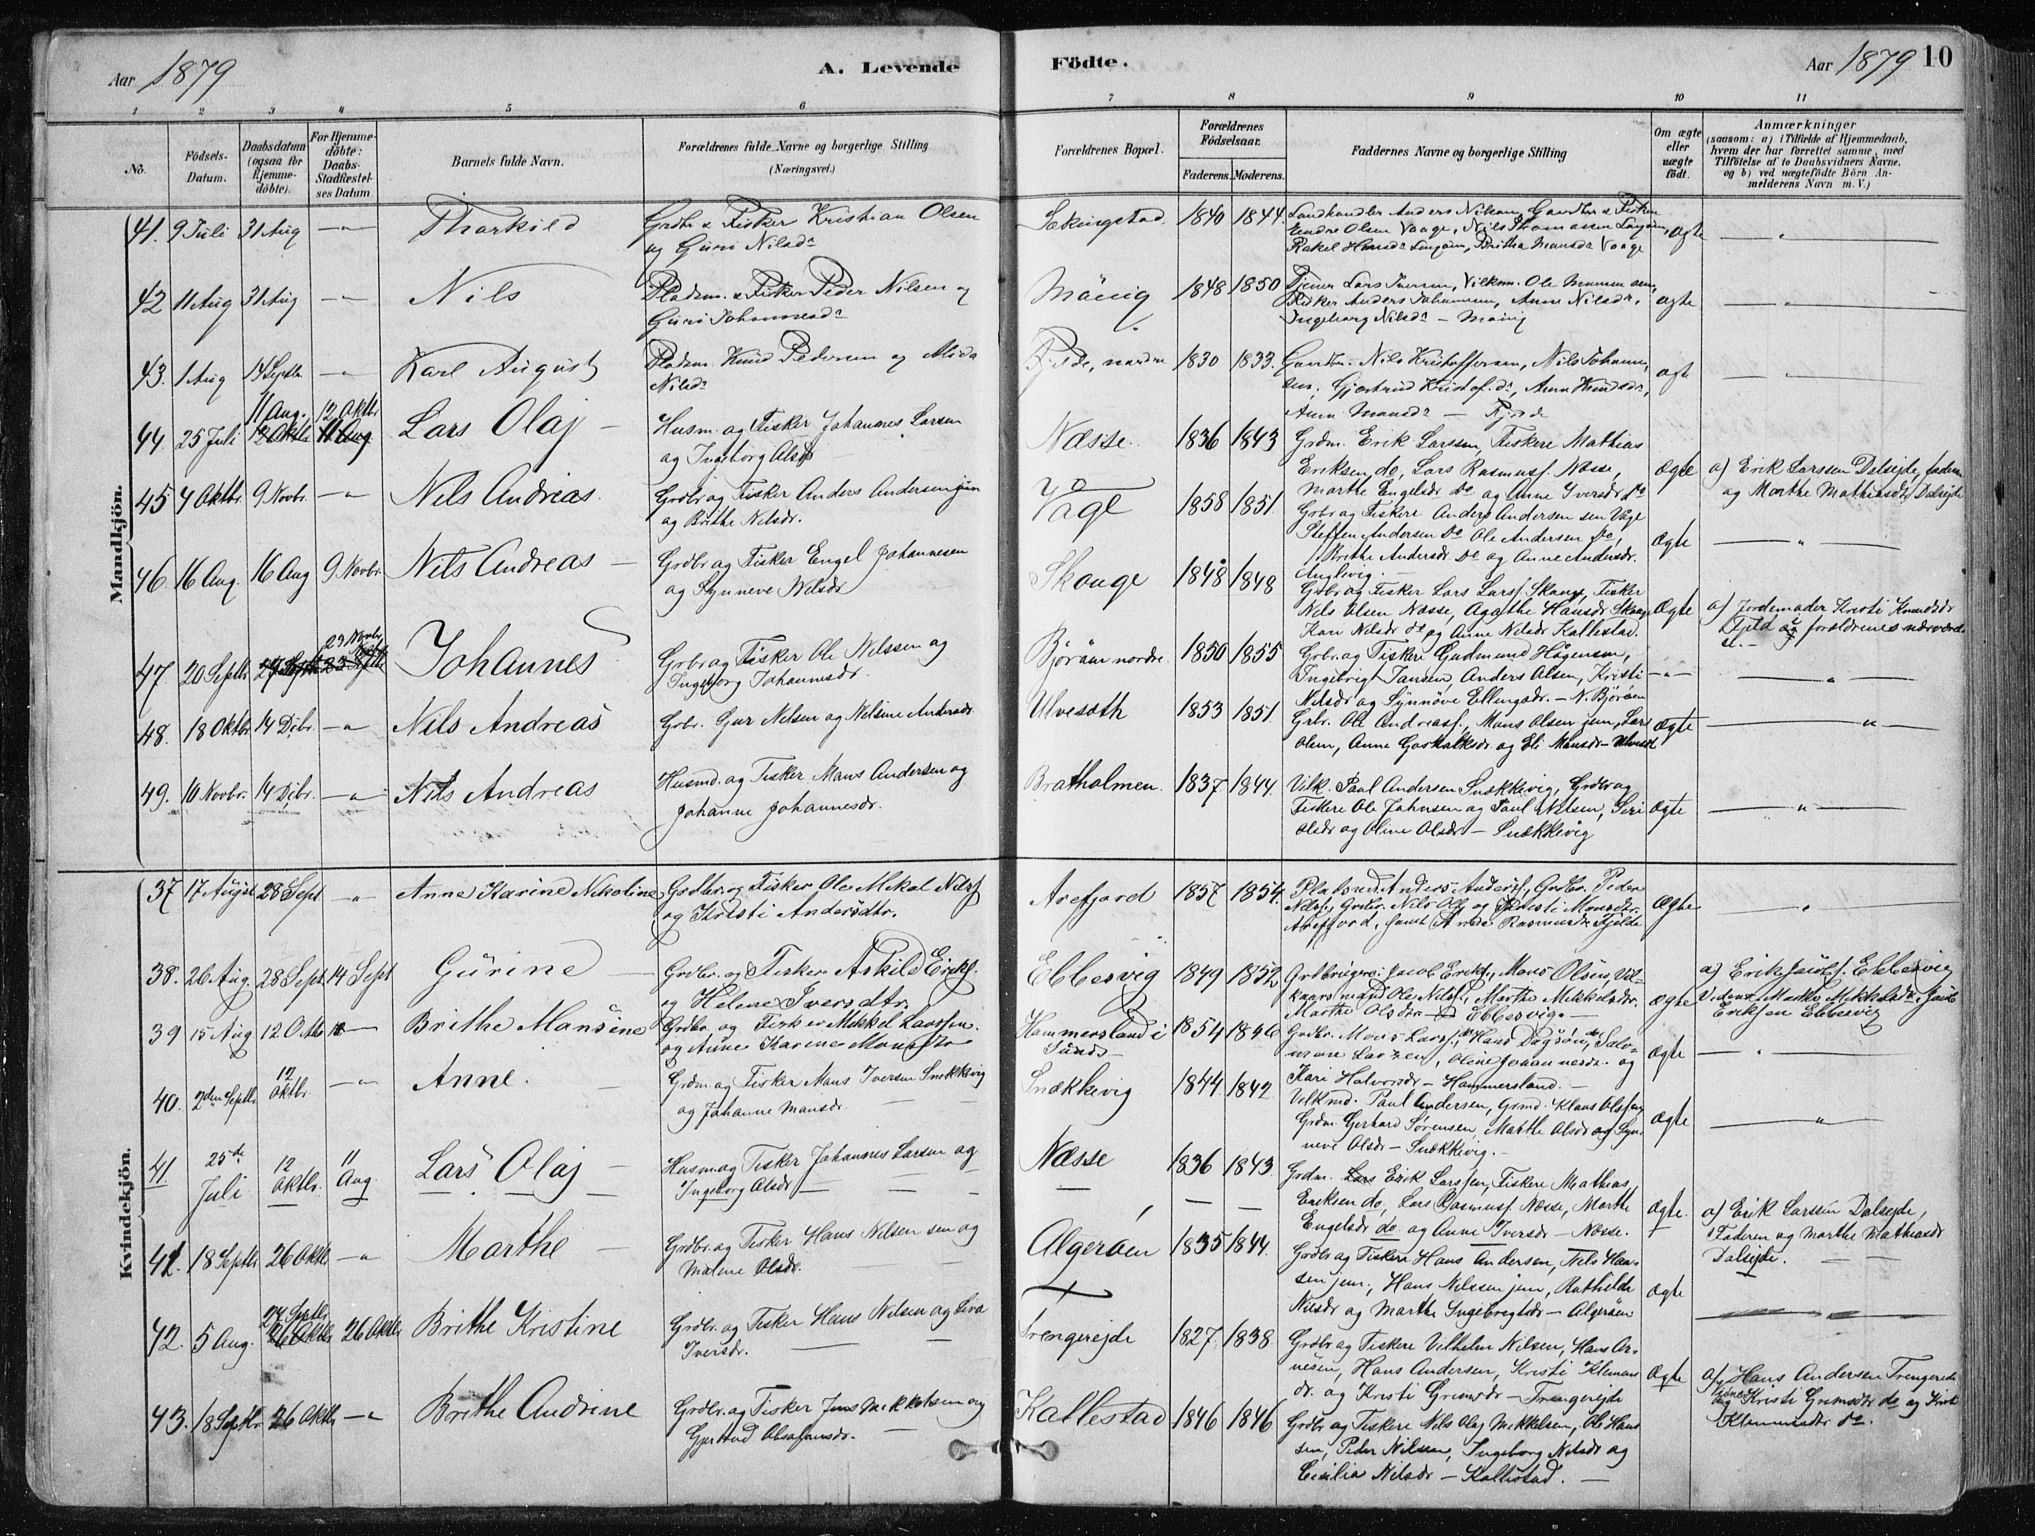 Aar 1879
A. Levende
Födte.
Aar 1879 10
1 2 3 4 5 6 7 8 9 10 11
No.
Födsels-Datum.
Daabsdatum (ogsaa for Hjemme-döbte).
For Hjemme-döbte: Daabs-Stadfæstel-ses Datum
Barnets fulde Navn.
Forældrenes fulde Navne og borgerlige Stilling
(Næringsvei.)
Forældrenes Bopæl.
Forældrenes Födselsaar.
Faderens. Moderens.
Faddernes Navne og borgerlige Stilling
Om ægte eller uægte födt.
Anmærkninger
(saasom: a) i Tilfælde af Hjemmedaab,
hvem der har forrettet samme, med
Tilföielse af to Daabsvidners Navne,
og b) ved uægtefödte Börn An-
melderens Navn m. V.)
Mandkjön.
41. 9 Juli 31 Aug —„— Thorkild Grdbr & Fisker Kristian Olsen
og Guri Nilsdr
1840 1844. Landhandler Anders Nilsen, Gaardbr & Fisker
Endre Olsen Vaage, Nils Thomassen
Rakel Hansdr, Britha Mansdr Vaage
ægte —„—
42 11 Aug 31 Aug —„— Nils Pladsm. & Fisker Peder Nilsen og
Guri Johannesdr
1848 1850 Tjener Lars Iversen, Vilkm. Ole
Fisker Anders Johannesen, Anne Nilsdr,
Ingeborg Nilsdr —
ægte —„—
43. 1 Aug 14 Septbr. —„— Karl August Pladsm. Knud Pedersen og
Nilsdr
nordre 1830 1833. Gaardbr. Nils Kristoffersen, Nils Johannes-
sen, Gjertrud Kristof.dr, Anna Knudsdr,
Anna Mansdr —
ægte —„—
44. 25 Juli 11 Aug. 12 Oktbr 11 Aug Lars Olaj — Husm. og Fisker Johannes Larsen
og Ingeborg Olsdr
Næsse. 1836 1843 Grdm. Erik Larssen, Fiskere Mathias
Eriksen do, Lars Rasmusf. Næsse,
Marthe Engelsdr do og Anne Iversdr do
Ægte a) Erik Larssen Dalsejde, faderen
og Marthe Mathiasdr Dalsejde
45 4 Oktbr. 9 Novbr. —„— Nils Andreas. Grdbr og Fisker Anders Andersen jun
og Brithe Nilsdr.
Våge 1858 1851 Grbr og Fiskere Anders Andersen sen Våge
Steffen Andersen do Ole Andersen do,
Brithe Andersdr do og Anne Andersdr.
Anglevig —
Ægte „
46. 16 Aug. 16 Aug 9 Novbr. Nils Andreas — Grdbr og Fisker Engel Johannesen
og Synneve Nilsdr
Skauge 1848 1848 Grdbr og Fisker Lars Larsf. Skauge, Fisker
Nils Olsen Næsse, Agathe Hansdr Skauge
Kari Nilsdr do og Anne Nilsdr Kallestad.
Ægte a) Jordemoder Kristi Knudsdr
Fjeld og forældrenes nærværel-
se. —
47 20 Septbr 23 Novbr. Johannes Grbr og Fisker Ole Nilssen og
Ingeborg Johannesdr.
Bjørøen nordre. 1850 1855 Grbr. og Fiskere Gudmund Hågensen,
Ingebrigt Jansen, Anders Olsen, Kristi
Nilsdr og Synnøve Ellingsdr. — N. Bjørøen
—„— „
48. 18 Oktbr. 14 Dcbr. —„— Nils Andreas Grbr. Nilsen og Nilsine Andersdr
Ulvesæth 1853 1851. Grbr. Ole Andreasf., Mons Olsen jun, Lars
Olsen, Anne Gaskalksdr og Eli Monsdr — Ulveset
Ægte „
49. 10 Novbr. 14 Dcbr. —„— Nils Andreas Husmd. og Fisker Mans Andersen og
Johanne Johannesdr.
Bratholmen. 1837 1844. Vilk. Paul Andersen Snekkevig, Grdbr og
Fiskere Ole Johnsen og Paul Nilsen, Siri
Olsdr og Oline Olsdr — Snekkevig
Ægte „
Kvindekjön.
37 17 August 28 Sept „ Anne Karine Nikoline Grdbr. og Fisker Ole Mikal Nilsf
og Kristi Andersdtr.
Arefjord 1857 1854. Pladsmd. Anders Andersf., Grdbr. Peder
Nilsf., Grdbr. Nils Ols og Kristi Monsdtr.
Arefjord, samt Anne Rasmusdtr Fjelde
Ægte „
38. 26 Aug. 28 Sept 14 Sept Gurine Grdbr. og Fisker Askild Erikf.
og Helene Iversdtr.
Ebbesvig 1849 1852 Grdbrugere: Jacob Erikf., Mons Olsen, Vil-
kaarsmand Ole Nilsf., Marthe Mikkelsdtr.
Marthe Olsdr — Ebbesvig. —
ægte a) Erik Jacobf. Ebbesvig
Vidner Marthe Mikkelsdr, Jacob
Eriksen Ebbesvig
39 15 Aug 12 Oktbr — Brithe Mansine Grdbr. og Fisker Mikkel Larssen.
og Anne Karine Monsdtr
Hammersland i Sund 1854 1846 Grdbr. Mons Larsf., Hans, Salo-
mon Larsen, Oline Johannesdr. og
Kari Halvorsdr — Hammersland. —
ægte — „
40. 2den Septbr 12 Oktbr. —„— Anne. — Grdm. og Fisker Mans Iversen Snekkevig
og Johanne Mansdr. —
Snækkevig 1844. 1842 Vilkmd. Paul Andersen, Grmd. Klaus Olsen,
Grdm Gerhard Sørensen, Marthe Olsdr og Syn-
neve Olsdr — Snækkevig. —
Ægte „
41. 25de Juli 12 Oktbr. 11 Aug. Lars Olaj — Husm. og Fisker Johannes Larsen og
Ingeborg Olsdr —
Næsse 1836 1843. Grdm. Erik Larssen, Fiskere Mathias
Eriksen do, Lars Rasmusf Næsse, Marthe
Engelsdr do og Anne Iversdr — Næsse.
Ægte. a) Erik Larssen Dalsejde,
Faderen og Marthe Mathiasdr
Dalsejde. —
41 18 Septbr 26 Oktbr „ Marthe — Grdbr. og Fisker Hans Nilsen sen og
Malene Olsdr.
Algerøen 1835 1844. Grdbr og Fiskere Hans Andersen, Nils Han-
sen jun., Hans Nilssen jun, Rathilde
Nilsdr og Marthe Ingebrigtsdr — Algerøen
Ægte
42. 5 Aug. 27 Septbr 26 Oktbr Brithe Kristine Grdbr. og Fisker Hans Nilsen og Siva
Iversdr. —
Trengerejde 1827 1838 Grdbr og Fiskere Vilhelm Nilsen, Hans Ar-
nesen, Hans Andersen, Kristi Klemens
dr. og Kristi Grimsdr — Trengerejde
Ægte a) Hans Andersen Trengereide
Kristi Grimsdr do og Kristi
Klemensdr do.
43. 18 Septbr 26 Oktbr —„ Brithe Andrine Grdbr. og Fisker Jens Mikkelsen og
Gjertrud dr. —
Kallestad 1846 1846 Grdbr og Fiskere Nils Olaj Mikkelsen, Ole Hans
sen, Peder Nilsen, Ingeborg Nilsdr og
Cicilia Nilsdr — Kallestad. —